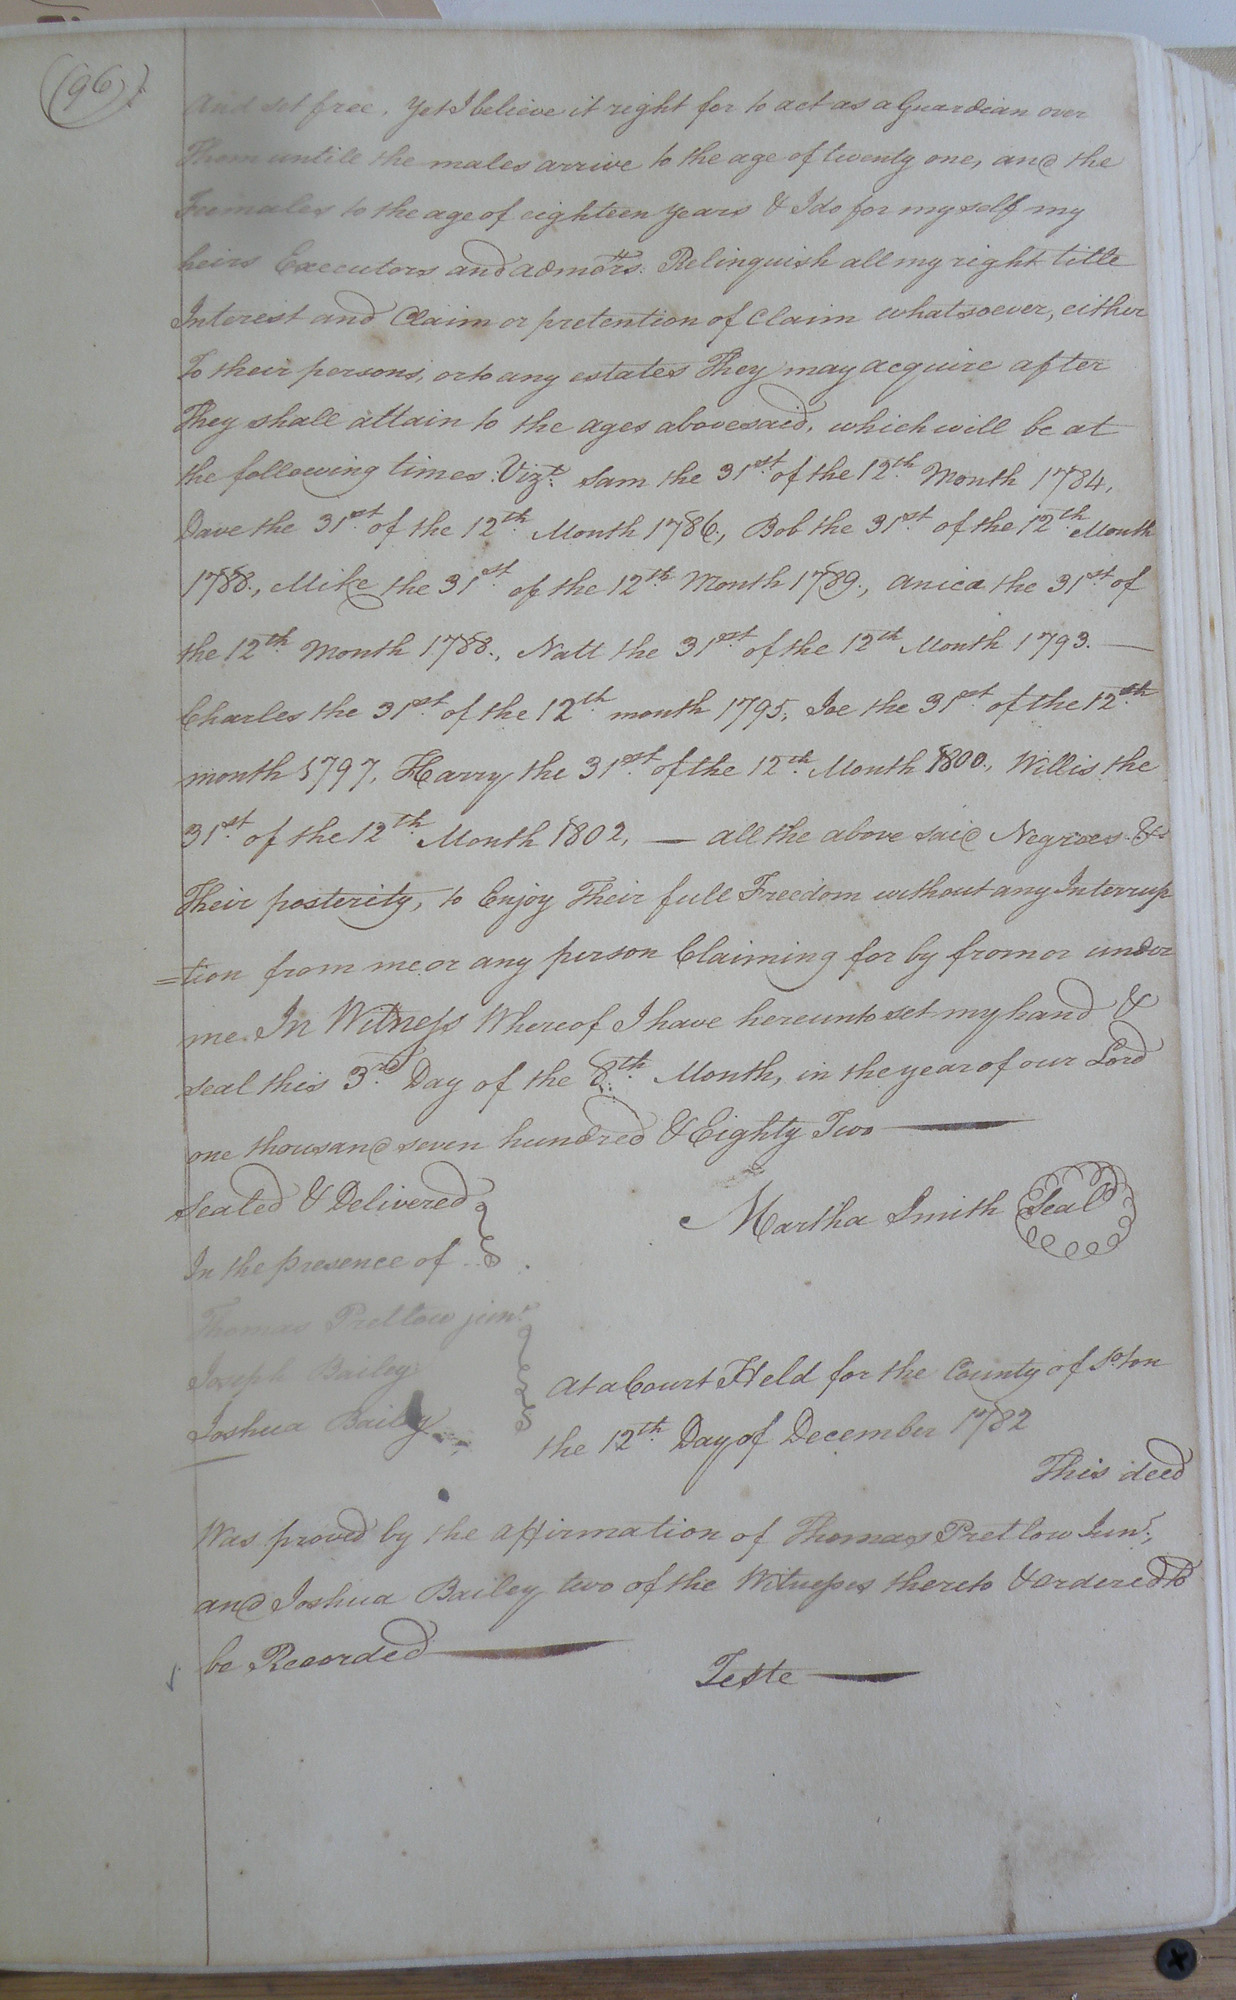 (96)
And set free, yet I believe it right for to act as a Guardian over
Them untile the males arrive to the age of twenty one, and the
Feemales to the age of eighteen years & I do for my self my
heirs Executors and admōrs. Relinquish all my right title
Interest and Claim or pretention of Claim whatsoever, either
To their persons, or to any estates They may acquire after
They shall attain to the ages abovesaid, which will be at
the following times. Vizt. Sam the 31st. of the 12th. Month 1784,
Dave the 31st. of the 12th. Month 1786., Bob the 31st of the 12th. Month
1788., Mike the 31st of the 12th. Month 1789., Anica the 31st. of
the 12th. Month 1788., Natt the 31st. of the 12th Month 1793. —
Charles the 31st. of the 12th. month 1795, Joe the 31st. of the 12th
month 1797, Harry the 31st. of the 12th. Month 1800., Willis the
31st of the 12th. Month 1802, — all the above said Negroes &
Their posterity, to Enjoy Their full Freedom without any Interrup
=tion from me or any person Claiming for by from or under
me. In Witness Whereof I have hereunto set my hand &
seal this 3rd. Day of the 8th. Month, in the year of our Lord
one thousand seven hundred & Eighty Two —
Sealed & Delivered
Martha Smith Seal
In the presence of
Thomas Pretlow junr.
Joseph Bailey
Joshua Bailey
At a Court Held for the County of So.ton
the 12th. Day of December 1782
This deed
Was proved by the affirmation of Thomas Pretlow Junr.,
and Joshua Bailey two of the Witnesses thereto & ordered to
be Recorded —
Teste —